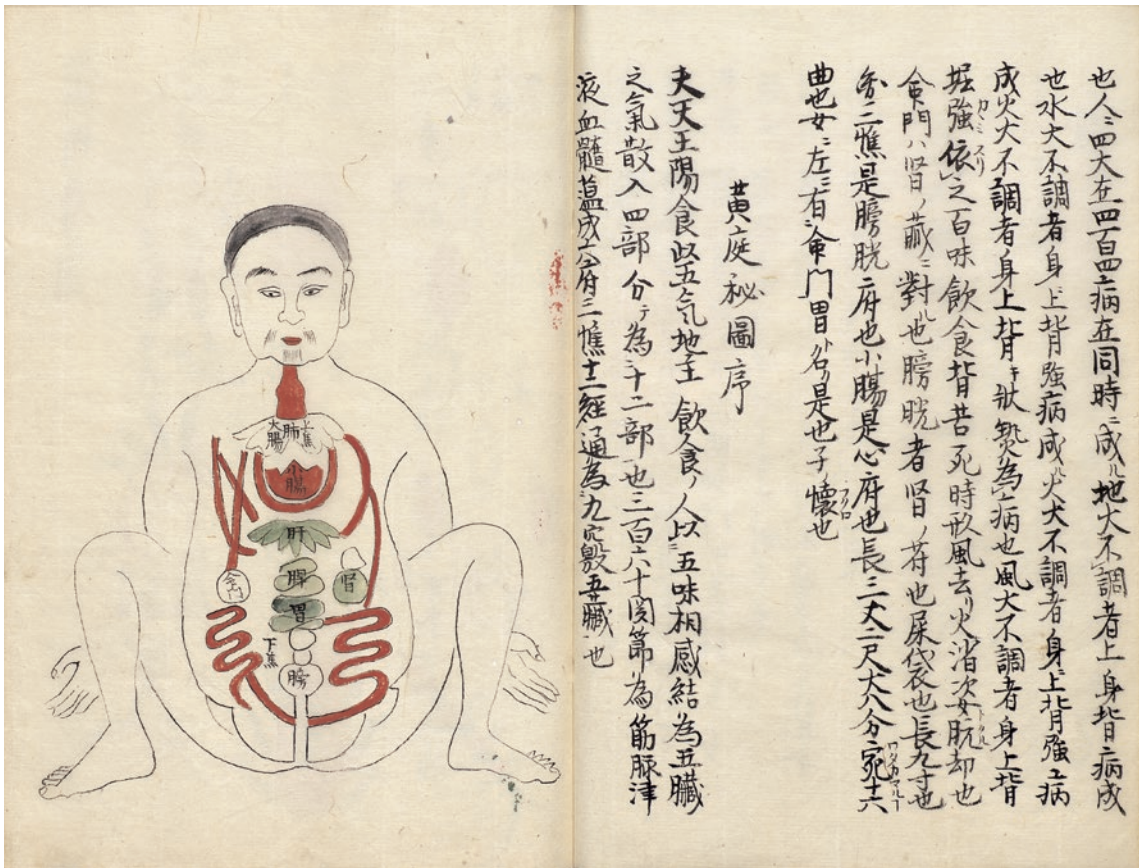 也人ニ四大在四百四病在同時ニ成ル地大不調者上身皆病成
也水大不調者身上背強病成ル火大不調者身上背強ニ病
成火大不調者身上背キ状熱為病也風大不調者身上背
堀強依之百味飲食皆苦死時形風去リ火消次却也
カミ スリ
命門ハ腎ノ藏ニ對ル也膀胱者腎ノ府也尿袋也長九寸也
二焦是膀胱ノ府也小腸是心府也長三丈二尺大八分
十六
曲也女ニ左ニ有命門胃ト名リ是也子ノ懐也
フクロ
黄庭秘圖序
夫天主陽食以五氣地主飲食ノ人以五味相感結為五臓
之氣散入四部分テ為十二部也三百六十関節為筋脉津
液血髓蘊成六府三焦十二經通為九穴五臓也
大腸
肺
上焦
小腸
肝
脾
胃
命門
腎
下焦
膀